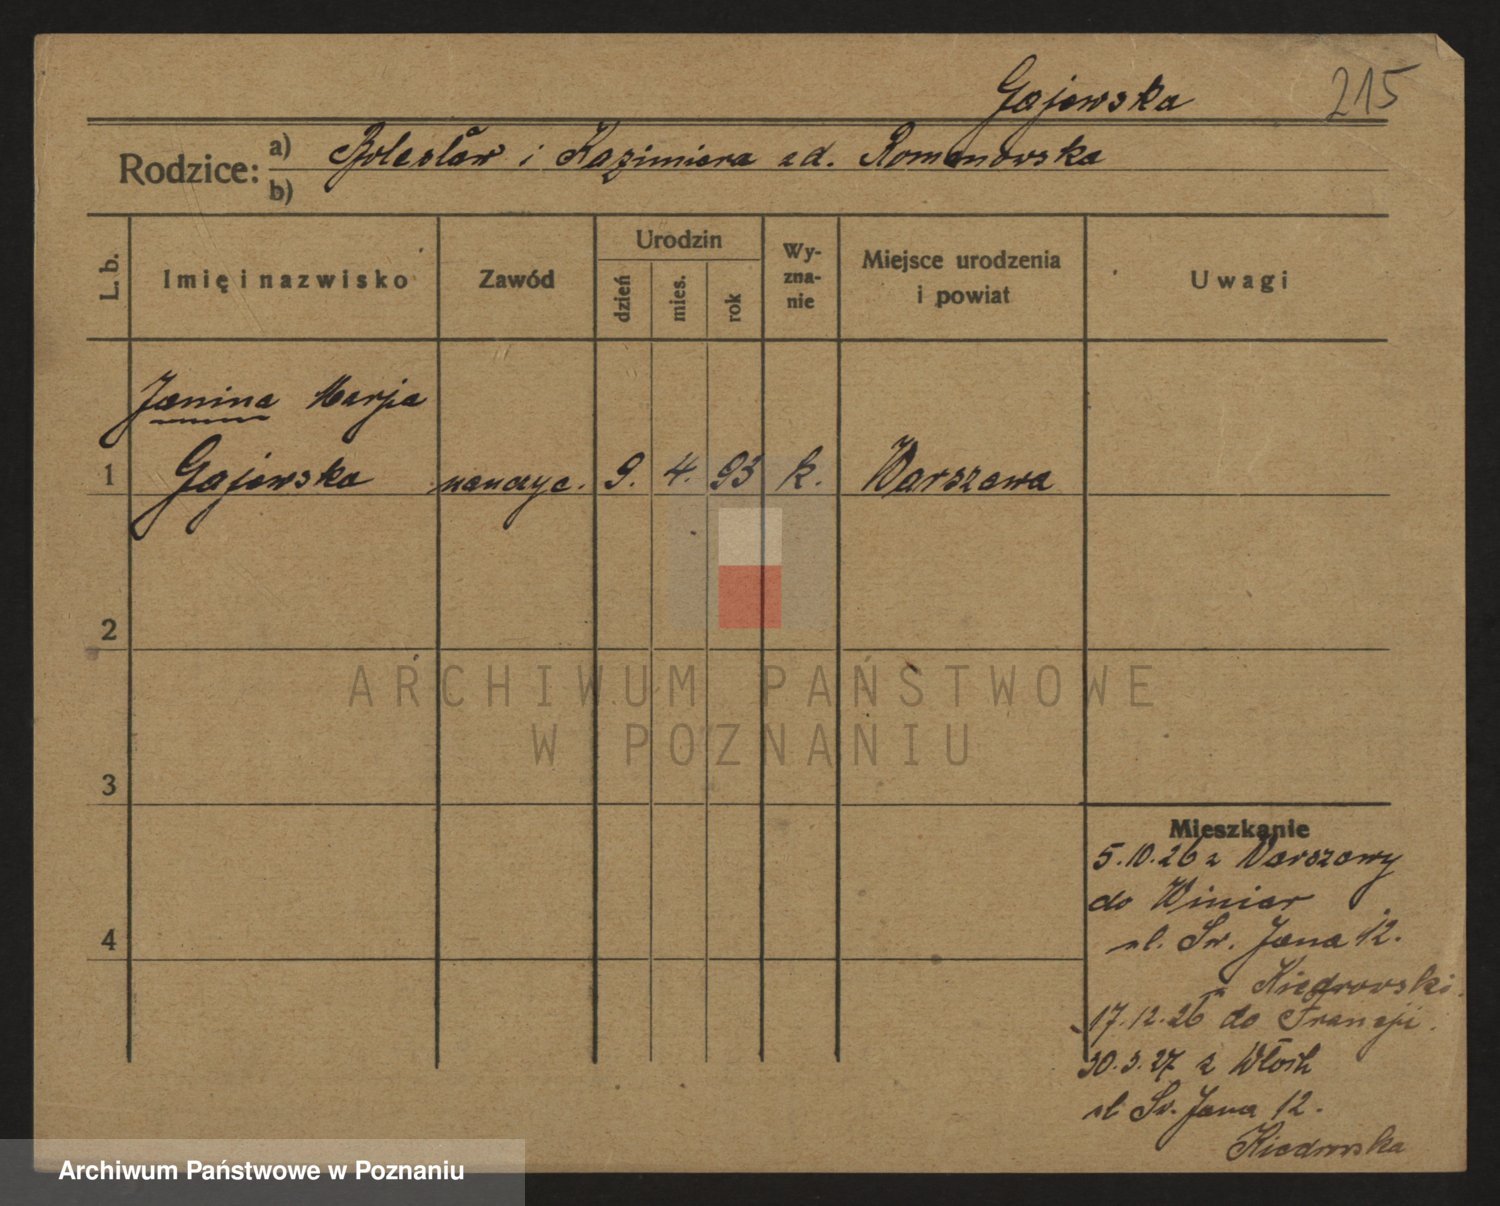 Gajewska 215
Rodzice: a) Bolesław i Kazimiera zd. Romanowska
b)
L. b. Imię i nazwisko Zawód Urodzin dzień mies. rok Wy-zna-nie Miejsce urodzenia i powiat Uwagi
Janina Marja
1 Gajewska nauczyc. 9. 4. 93 k. Warszawa
2
ARCHIWUM PAŃSTWOWE
W POZNANIU
3
Mieszkanie
5.10.26 z Warszawy
do Winiar
4
ul. Św. Jana 12.
Kiedrowski.
17.12.26 do Francji.
30.3.27 z Włoch
ul. Św. Jana 12.
Kiedrowska
Archiwum Państwowe w Poznaniu